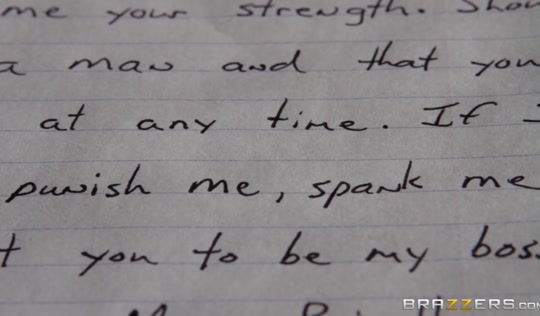 me your strength. Show
a man and that you
at any time. If I
punish me, spank me
t you to be my bos
BRAZZERS.COM